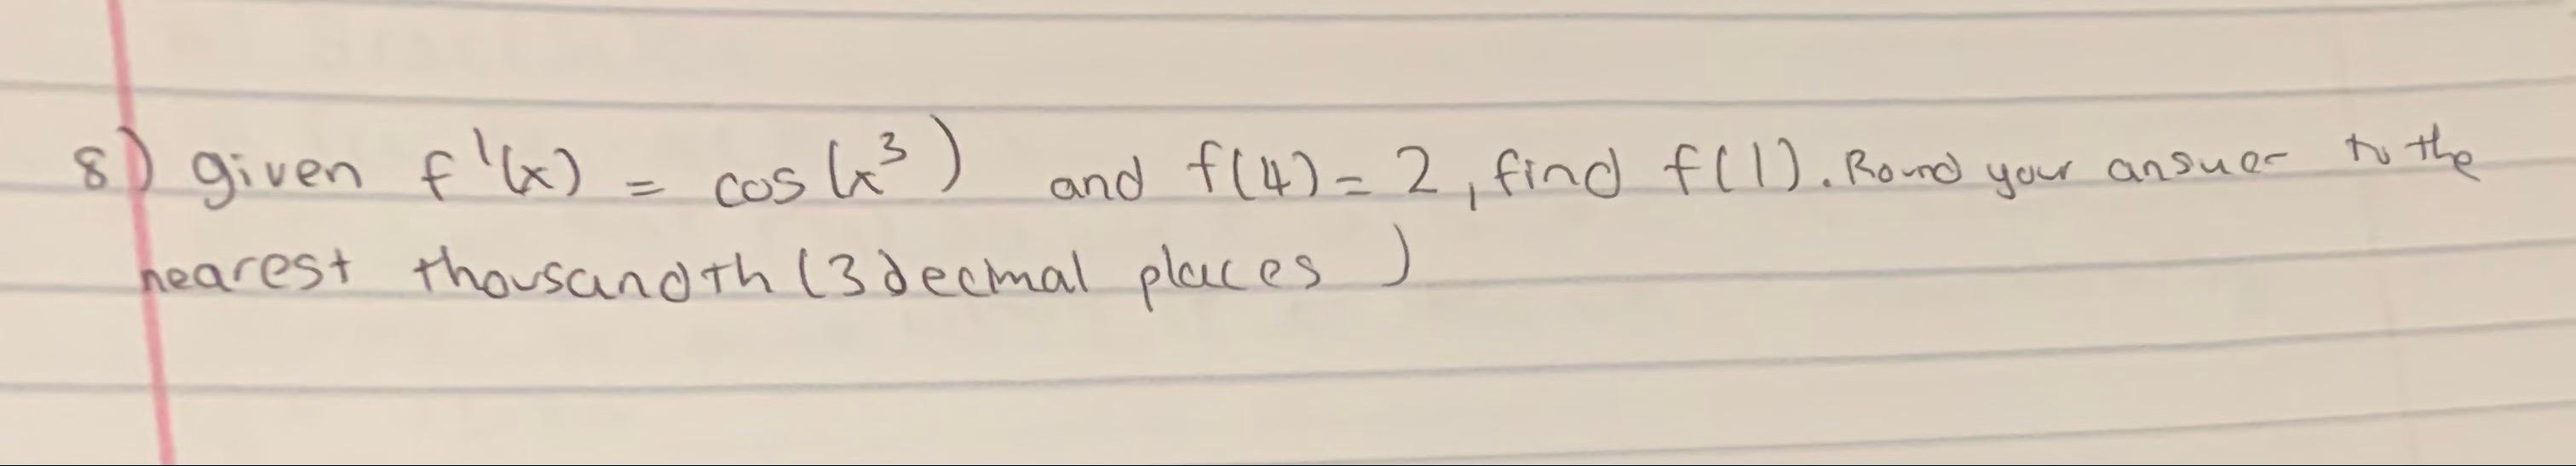 8) given f'(x) = cos(x³) and f(4) = 2, find f(1). Round your answer to the
nearest thousandth (3 decimal places )